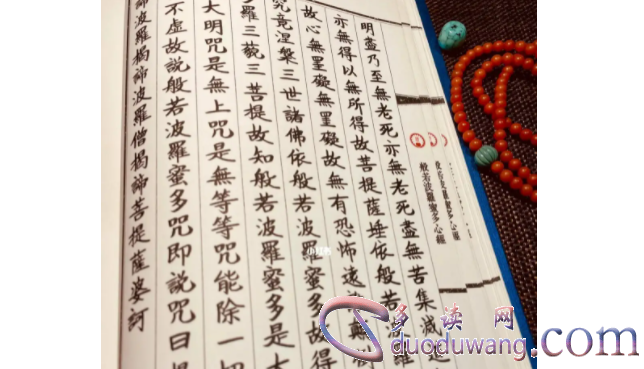 明盡乃至無老死亦無老死盡無苦集滅
亦無得以無所得故菩提薩埵依般若波羅
故心無罣礙無罣礙故無有恐怖遠
究竟涅槃三世諸佛依般若波羅蜜多故得
多羅三藐三菩提故知般若波羅蜜多是大
大明咒是無上咒是無等等咒能除一切
不虛故說般若波羅蜜多咒即說咒曰揭
諦波羅揭諦波羅僧揭諦菩提薩婆訶
般若波羅蜜多心經
般若波羅蜜多心經
小红书
多读网
duoduwang.com